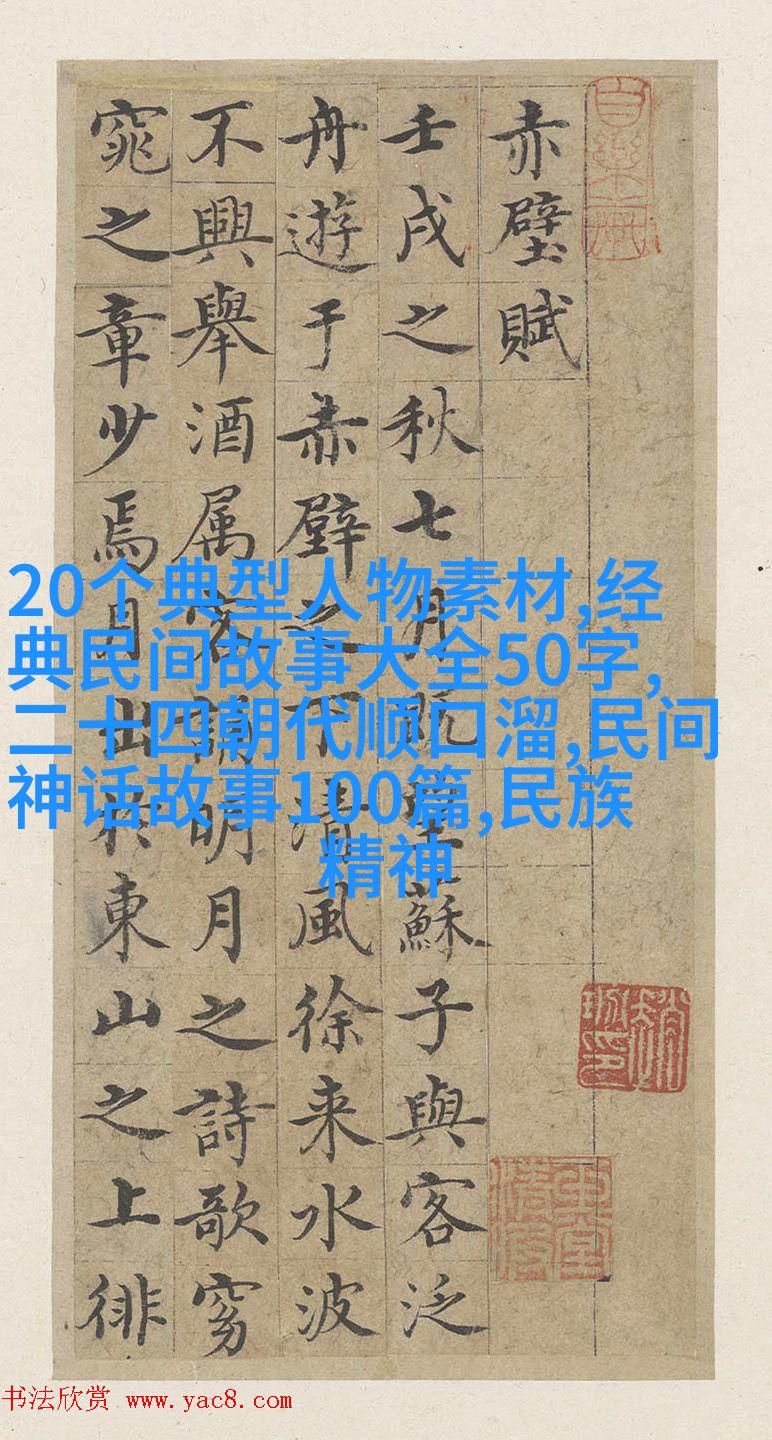 赤壁賦
壬戌之秋七月既望蘇子與客泛
舟遊于赤壁之下清風徐来水波
不興舉酒属客誦明月之詩歌窈
窕之章少焉月出於東山之上徘
20个典型人物素材,经
典民间故事大全50字,
二十四朝代顺口溜,民间
神话故事100篇,民族
精神
书法欣赏 www.yac8.com